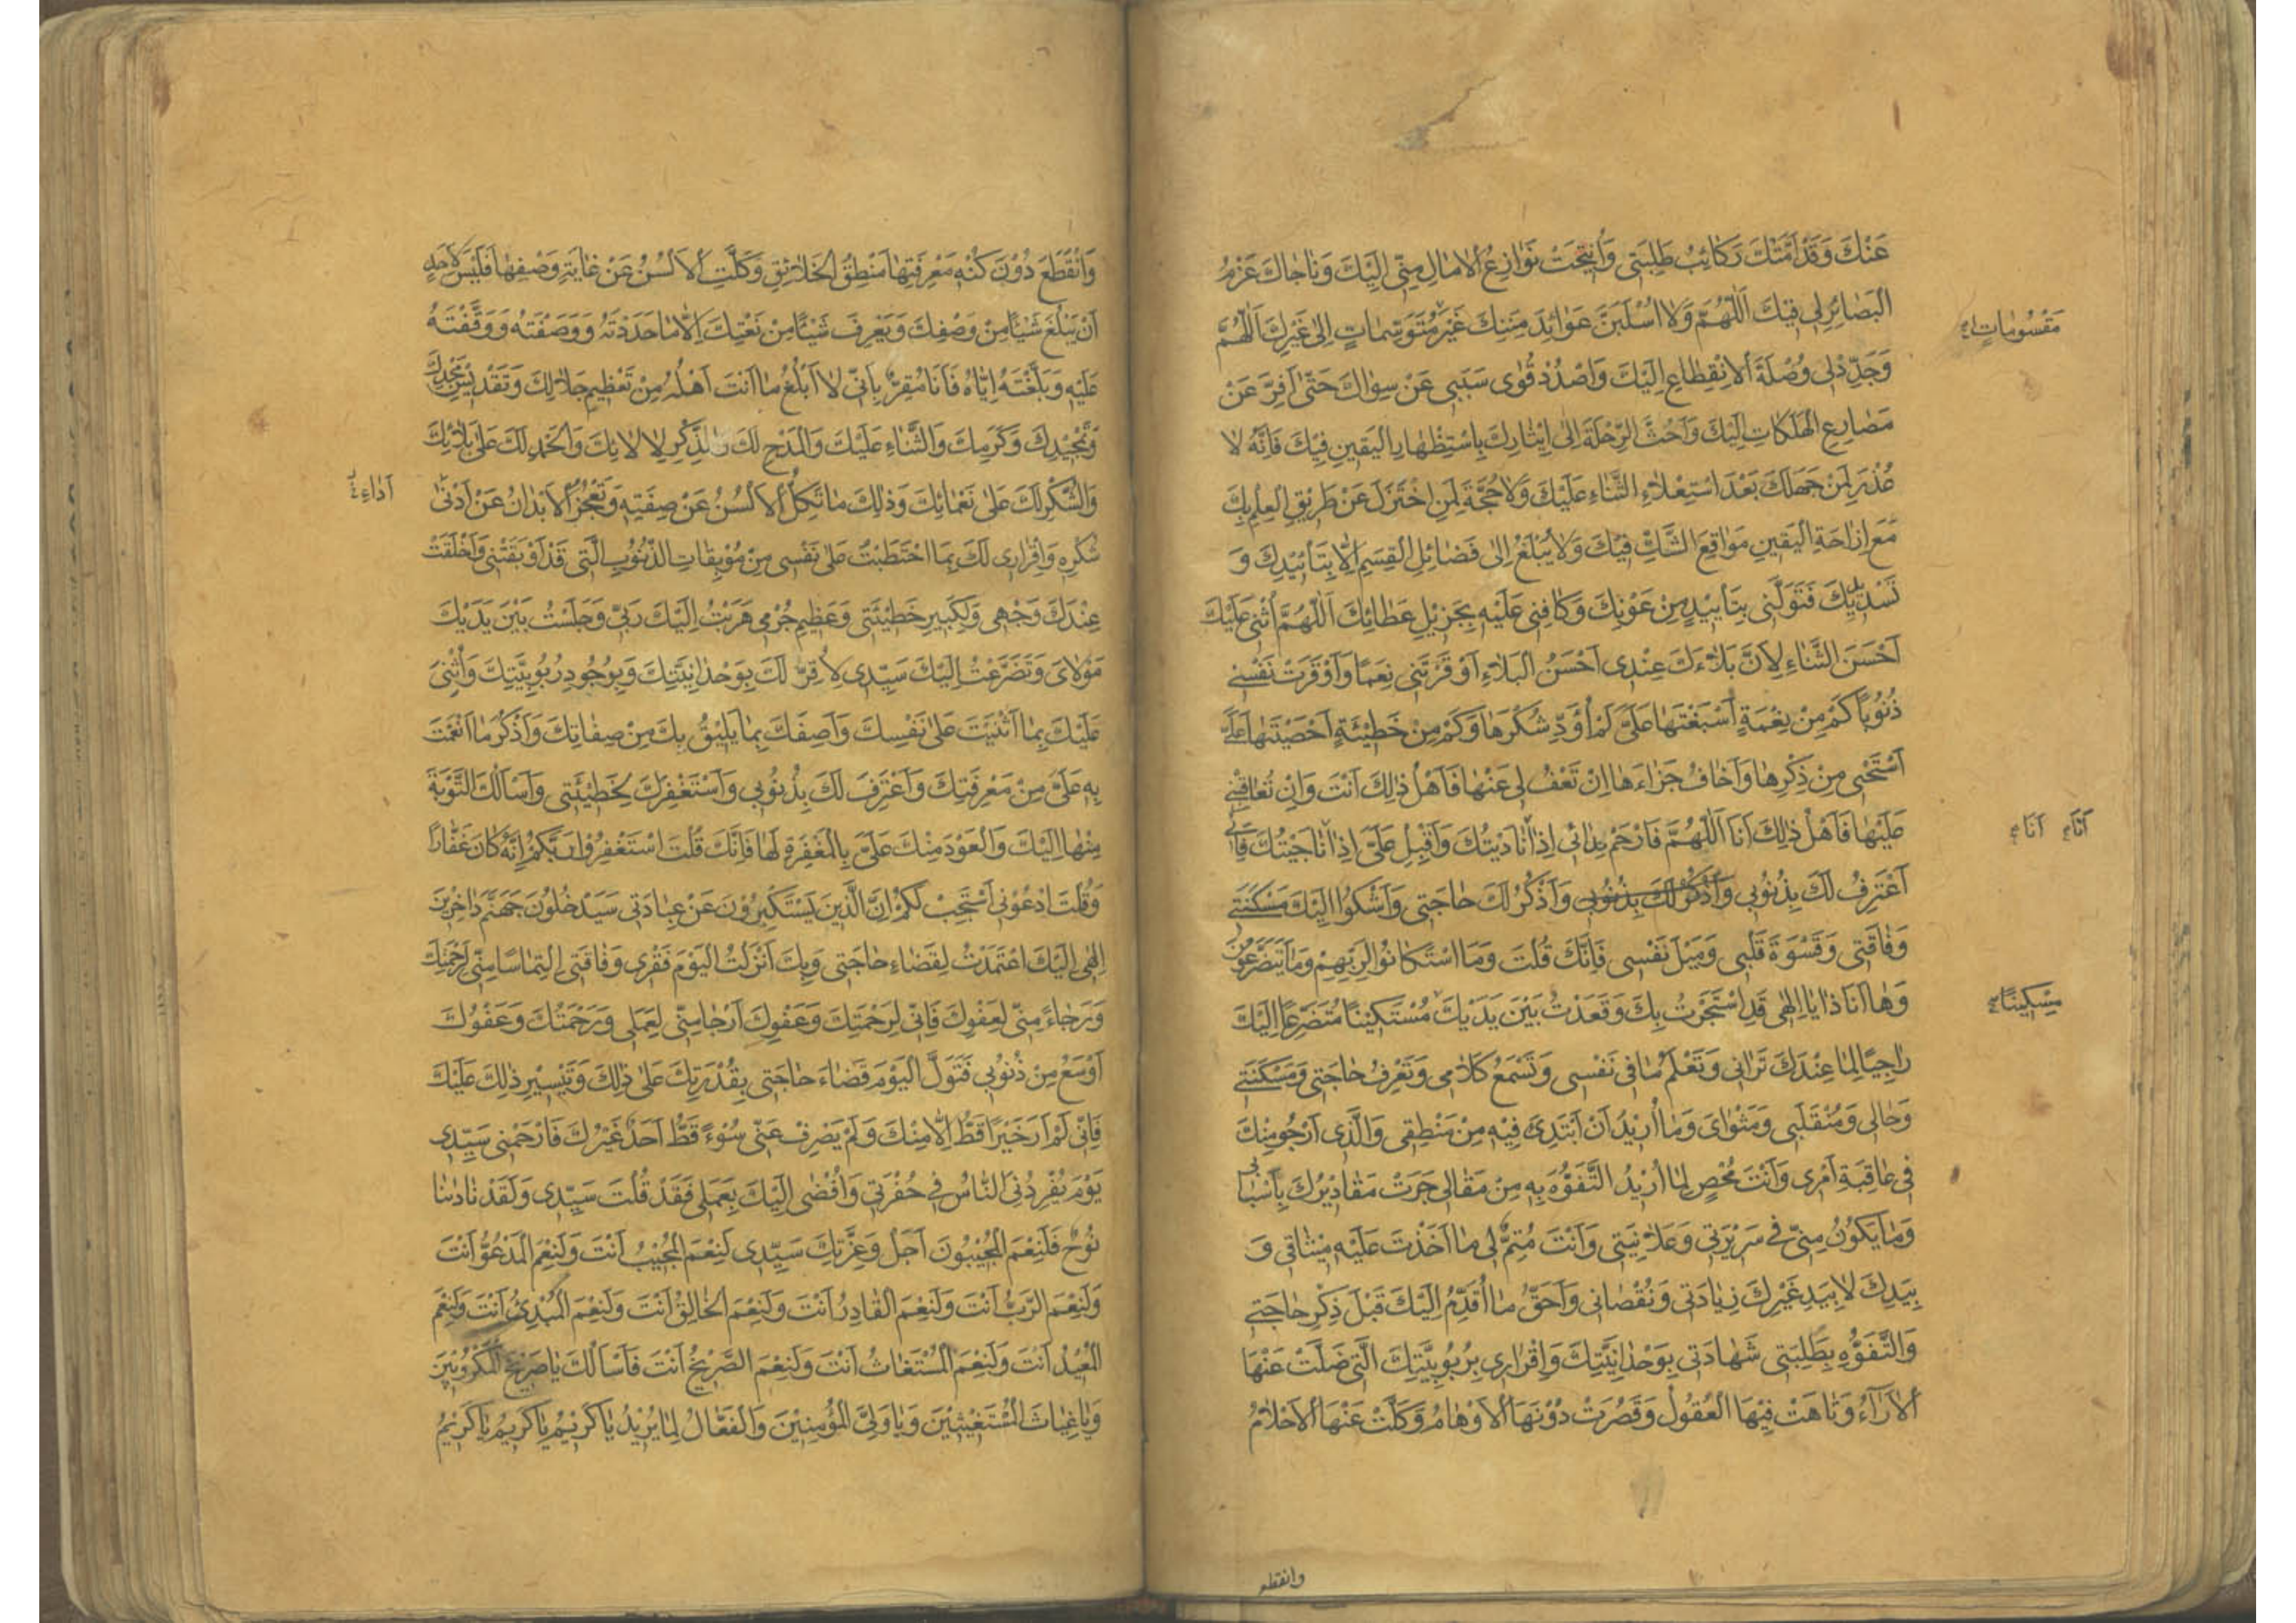 عَنْكَ وَقَدْ اَمَّتْكَ رَكَائِبُ طَلِبَتِى وَاُنْتِجَتْ نَوَازِعُ الْاٰمَالِ مِنِّى اِلَيْكَ وَنَاجَاكَ عَزْمُ
الْبَصَائِرِ لِى فِيْكَ اَللّٰهُمَّ وَلَا اُسْلَبَنَّ عَوَائِدَ مِنَنِكَ غَيْرَ مُتَوَسِّمَاتٍ اِلٰى غَيْرِكَ اَللّٰهُمَّ
مَقْسُومَاتٍ
وَجَدِّدْ لِى وُصْلَةَ الْاِنْقِطَاعِ اِلَيْكَ وَاصْدُدْ قُوٰى سَبَبِى عَنْ سِوَاكَ حَتّٰى اَفِرَّ عَنْ
مَصَارِعِ الْهَلَكَاتِ اِلَيْكَ وَاَحُثَّ الرِّحْلَةَ اِلٰى اِيْثَارِكَ بِاسْتِظْهَارِ الْيَقِينِ فِيْكَ فَاِنَّهُ لَا
عُذْرَ لِمَنْ جَهِلَكَ بَعْدَ اسْتِعْلَاءِ الثَّنَاءِ عَلَيْكَ وَلَا حُجَّةَ لِمَنِ اخْتَزَلَ عَنْ طَرِيْقِ الْعِلْمِ بِكَ
مَعَ اِزَاحَةِ الْيَقِينِ مَوَاقِعَ الشَّكِّ فِيْكَ وَلَا يُبْلَغُ اِلٰى فَضَائِلِ الْقِسَمِ اِلَّا بِتَأْئِيْدِكَ وَ
تَسْدِيْدِكَ فَتَوَلَّنِى بِتَأْيِيْدٍ مِنْ عَوْنِكَ وَكَافِنِى عَلَيْهِ بِجَزِيْلِ عَطَائِكَ اَللّٰهُمَّ اُثْنِى عَلَيْكَ
اَحْسَنَ الثَّنَاءِ لِاَنَّ بَلَاءَكَ عِنْدِى اَحْسَنُ الْبَلَاءِ اَوْقَرْتَنِى نِعَمًا وَاَوْقَرَتْ نَفْسِى
ذُنُوبًا كَمْ مِنْ نِعْمَةٍ اَسْبَغْتَهَا عَلَىَّ لَمْ اُؤَدِّ شُكْرَهَا وَكَمْ مِنْ خَطِيْئَةٍ اَحْصَيْتَهَا عَلَىَّ
اَسْتَحْيِى مِنْ ذِكْرِهَا وَاَخَافُ جَزَاءَهَا اِنْ تَعْفُ لِى عَنْهَا فَاَهْلُ ذٰلِكَ اَنْتَ وَاِنْ تُعَاقِبْنِى
عَلَيْهَا فَاَهْلُ ذٰلِكَ اَنَا اَللّٰهُمَّ فَارْحَمْ نِدَائِى اِذَا نَادَيْتُكَ وَاَقْبِلْ عَلَىَّ اِذَا نَاجَيْتُكَ فَاِنِّى
اَنَا اَنَا
اَعْتَرِفُ لَكَ بِذُنُوبِى وَاَذْكُرُ لَكَ بِذُنُوبِى وَاَذْكُرُ لَكَ حَاجَتِى وَاَشْكُوا اِلَيْكَ مَسْكَنَتِى
وَفَاقَتِى وَقَسْوَةَ قَلْبِى وَمَيْلَ نَفْسِى فَاِنَّكَ قُلْتَ وَمَا اسْتَكَانُوا لِرَبِّهِمْ وَمَا يَتَضَرَّعُونَ
وَهَا اَنَا ذَا يَا اِلٰهِى قَدِ اسْتَجَرْتُ بِكَ وَقَعَدْتُ بَيْنَ يَدَيْكَ مُسْتَكِيْنًا مُتَضَرِّعًا اِلَيْكَ
مِسْكِينًا
رَاجِيًا لِمَا عِنْدَكَ تَرَانِى وَتَعْلَمُ مَا فِى نَفْسِى وَتَسْمَعُ كَلَامِى وَتَعْرِفُ حَاجَتِى وَمَسْكَنَتِى
وَحَالِى وَمُنْقَلَبِى وَمَثْوَاىَ وَمَا اُرِيْدُ اَنْ اَبْتَدِئَ فِيْهِ مِنْ مَنْطِقِى وَالَّذِى اَرْجُو مِنْكَ
فِى عَاقِبَةِ اَمْرِى وَاَنْتَ مُحْصٍ لِمَا اُرِيْدُ التَّفَوُّهَ بِهِ مِنْ مَقَالِى جَرَتْ مَقَادِيْرُكَ بِاَسْبَابِى
وَمَا يَكُونُ مِنِّى فِى سَرِيْرَتِى وَعَلَانِيَتِى وَاَنْتَ مُتِمٌّ لِى مَا اَخَذْتَ عَلَيْهِ مِيْثَاقِى وَ
بِيَدِكَ لَا بِيَدِ غَيْرِكَ زِيَادَتِى وَنُقْصَانِى وَاَحَقُّ مَا اُقَدِّمُ اِلَيْكَ قَبْلَ ذِكْرِ حَاجَتِى
وَالتَّفَوُّهِ بِطَلِبَتِى شَهَادَتِى بِوَحْدَانِيَّتِكَ وَاِقْرَارِى بِرُبُوبِيَّتِكَ الَّتِى ضَلَّتْ عَنْهَا
الْاٰرَاءُ وَتَاهَتْ فِيْهَا الْعُقُولُ وَقَصُرَتْ دُوْنَهَا الْاَوْهَامُ وَكَلَّتْ عَنْهَا الْاَحْلَامُ
وانقطع
وَانْقَطَعَ دُوْنَ كُنْهِ مَعْرِفَتِهَا مَنْطِقُ الْخَلَائِقِ وَكَلَّتِ الْاَلْسُنُ عَنْ غَايَةِ وَصْفِهَا فَلَيْسَ لِاَحَدٍ
اَنْ يَبْلُغَ شَيْئًا مِنْ وَصْفِكَ وَيَعْرِفَ شَيْئًا مِنْ نَعْتِكَ اِلَّا مَا حَدَدْتَهُ وَوَصَفْتَهُ وَوَقَّفْتَهُ
عَلَيْهِ وَبَلَّغْتَهُ اِيَّاهُ فَاَنَا مُقِرٌّ بِاَنِّى لَا اَبْلُغُ مَا اَنْتَ اَهْلُهُ مِنْ تَعْظِيمِ جَلَالِكَ وَتَقْدِيْسِ مَجْدِكَ
وَتَمْجِيْدِكَ وَكَرَمِكَ وَالثَّنَاءِ عَلَيْكَ وَالْمَدْحِ لَكَ وَالذِّكْرِ لِاٰلَائِكَ وَالْحَمْدِ لَكَ عَلٰى بَلَائِكَ
وَالشُّكْرِ لَكَ عَلٰى نَعْمَائِكَ وَذٰلِكَ مَا تَكِلُّ الْاَلْسُنُ عَنْ صِفَتِهِ وَتَعْجُزُ الْاَبْدَانُ عَنْ اَدْنٰى
اَدَاءِ
شُكْرِهِ وَاِقْرَارِى لَكَ بِمَا احْتَطَبْتُ عَلٰى نَفْسِى مِنْ مُوْبِقَاتِ الذُّنُوْبِ الَّتِى قَدْ اَوْبَقَتْنِى وَاَخْلَقَتْ
عِنْدَكَ وَجْهِى وَلِكَبِيرِ خَطِيْئَتِى وَعَظِيمِ جُرْمِى هَرَبْتُ اِلَيْكَ رَبِّى وَجَلَسْتُ بَيْنَ يَدَيْكَ
مَوْلَاىَ وَتَضَرَّعْتُ اِلَيْكَ سَيِّدِى لِاُقِرَّ لَكَ بِوَحْدَانِيَّتِكَ وَبِوُجُودِ رُبُوبِيَّتِكَ وَاُثْنِىَ
عَلَيْكَ بِمَا اَثْنَيْتَ عَلٰى نَفْسِكَ وَاَصِفَكَ بِمَا يَلِيْقُ بِكَ مِنْ صِفَاتِكَ وَاَذْكُرَ مَا اَنْعَمْتَ
بِهِ عَلَىَّ مِنْ مَعْرِفَتِكَ وَاَعْتَرِفَ لَكَ بِذُنُوْبِى وَاَسْتَغْفِرَكَ لِخَطِيْئَتِى وَاَسْاَلَكَ التَّوْبَةَ
مِنْهَا اِلَيْكَ وَالْعَوْدَ مِنْكَ عَلَىَّ بِالْمَغْفِرَةِ لَهَا فَاِنَّكَ قُلْتَ اسْتَغْفِرُوْا رَبَّكُمْ اِنَّهُ كَانَ غَفَّارًا
وَقُلْتَ ادْعُوْنِى اَسْتَجِبْ لَكُمْ اِنَّ الَّذِيْنَ يَسْتَكْبِرُوْنَ عَنْ عِبَادَتِى سَيَدْخُلُونَ جَهَنَّمَ دَاخِرِيْنَ
اِلٰهِى اِلَيْكَ اعْتَمَدْتُ لِقَضَاءِ حَاجَتِى وَبِكَ اَنْزَلْتُ الْيَوْمَ فَقْرِى وَفَاقَتِى اِلْتِمَاسًا مِنِّى لِرَحْمَتِكَ
وَرَجَاءً مِنِّى لِعَفْوِكَ فَاِنِّى لِرَحْمَتِكَ وَعَفْوِكَ اَرْجَا مِنِّى لِعَمَلِى وَرَحْمَتُكَ وَعَفْوُكَ
اَوْسَعُ مِنْ ذُنُوْبِى فَتَوَلَّ الْيَوْمَ قَضَاءَ حَاجَتِى بِقُدْرَتِكَ عَلٰى ذٰلِكَ وَتَيْسِيْرِ ذٰلِكَ عَلَيْكَ
فَاِنِّى لَمْ اَرَ خَيْرًا قَطُّ اِلَّا مِنْكَ وَلَمْ يَصْرِفْ عَنِّى سُوْءً قَطُّ اَحَدٌ غَيْرُكَ فَارْحَمْنِى سَيِّدِى
يَوْمَ يُفْرِدُنِى النَّاسُ فِى حُفْرَتِى وَاُفْضِى اِلَيْكَ بِعَمَلِى فَقَدْ قُلْتَ سَيِّدِى وَلَقَدْ نَادٰينَا
نُوْحٌ فَلَنِعْمَ الْمُجِيْبُونَ اَجَلْ وَعِزَّتِكَ سَيِّدِى لَنِعْمَ الْمُجِيْبُ اَنْتَ وَلَنِعْمَ الْمَدْعُوُّ اَنْتَ
وَلَنِعْمَ الرَّبُّ اَنْتَ وَلَنِعْمَ الْقَادِرُ اَنْتَ وَلَنِعْمَ الْخَالِقُ اَنْتَ وَلَنِعْمَ الْمُبْدِئُ اَنْتَ وَلَنِعْمَ
الْمُعِيْدُ اَنْتَ وَلَنِعْمَ الْمُسْتَغَاثُ اَنْتَ وَلَنِعْمَ الصَّرِيْخُ اَنْتَ فَاَسْاَلُكَ يَا صَرِيْخَ الْمَكْرُوْبِيْنَ
وَيَا غِيَاثَ الْمُسْتَغِيْثِيْنَ وَيَا وَلِىَّ الْمُؤْمِنِيْنَ وَالْفَعَّالُ لِمَا يُرِيْدُ يَا كَرِيْمُ يَا كَرِيْمُ يَا كَرِيْمُ